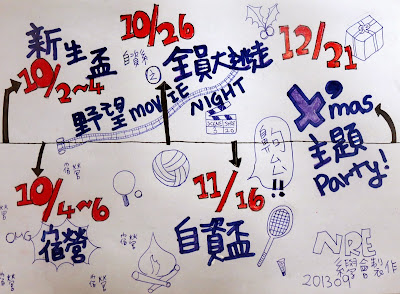 新生盃
10/2~4
10/26
自資系
之
全員大逃走
12/21
野望movie
NIGHT
X'mas
主題
Party!
宿營
10/4~6
OMG
宿營
宿營
宿營
宿營
宿營
11/16
自資盃
NRE
系學會製作
201309